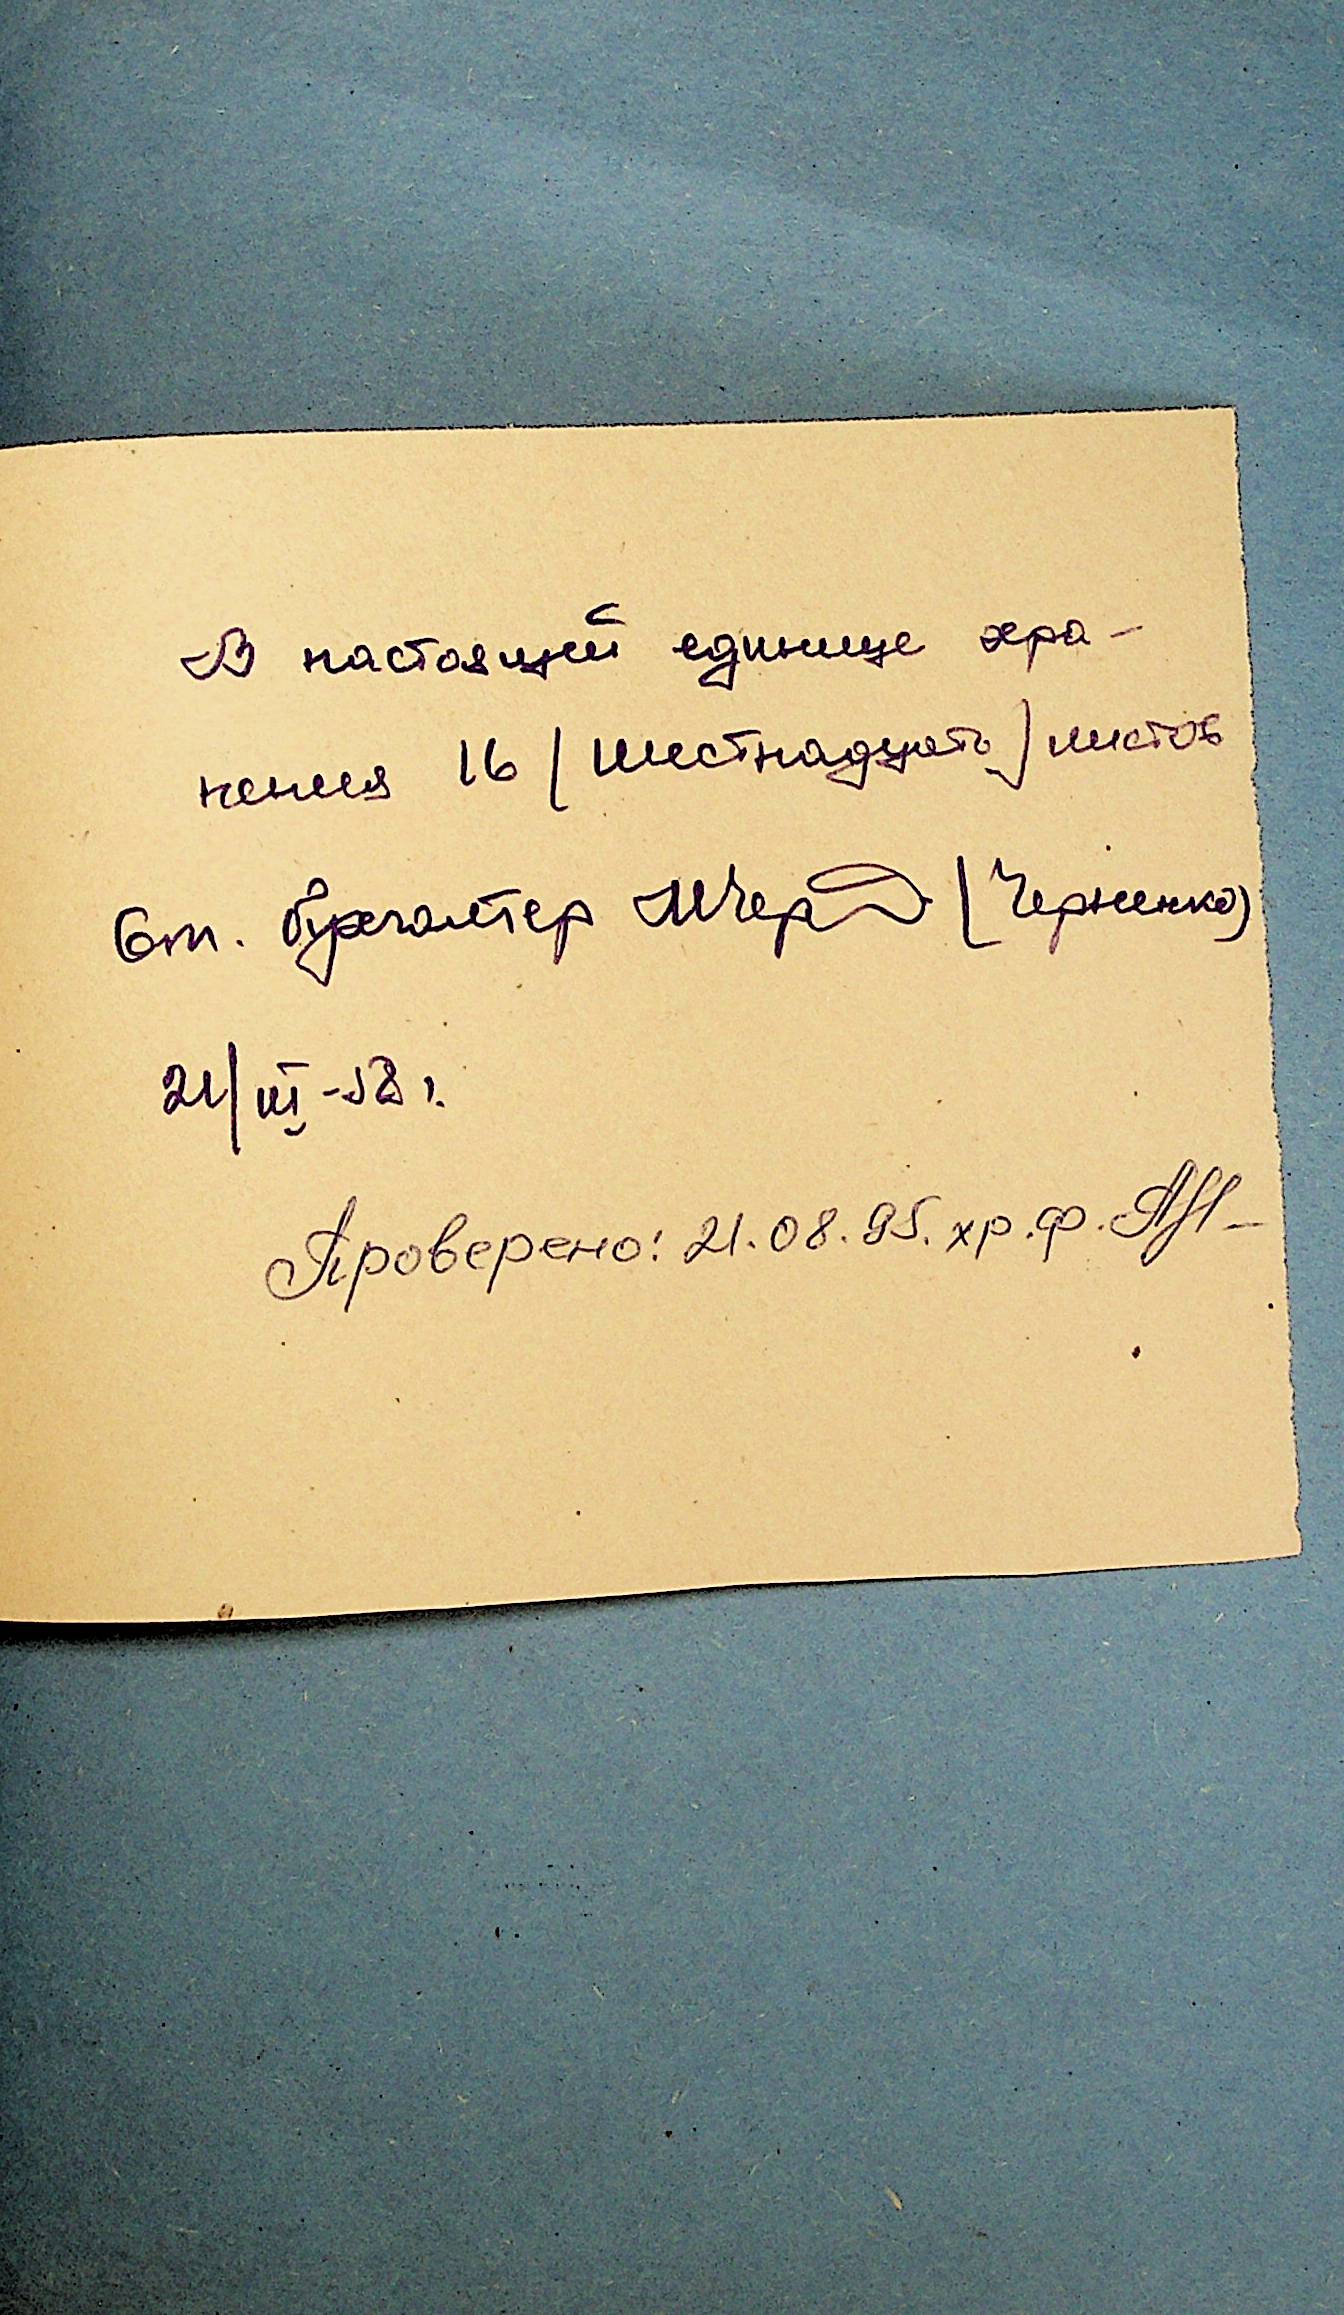 В настоящей единице хра-
нения 16 (шестнадцать) листов
Ст. бухгалтер (Черненко)
21/III-58 г.
Проверено: 21.08.95. хр.ф.